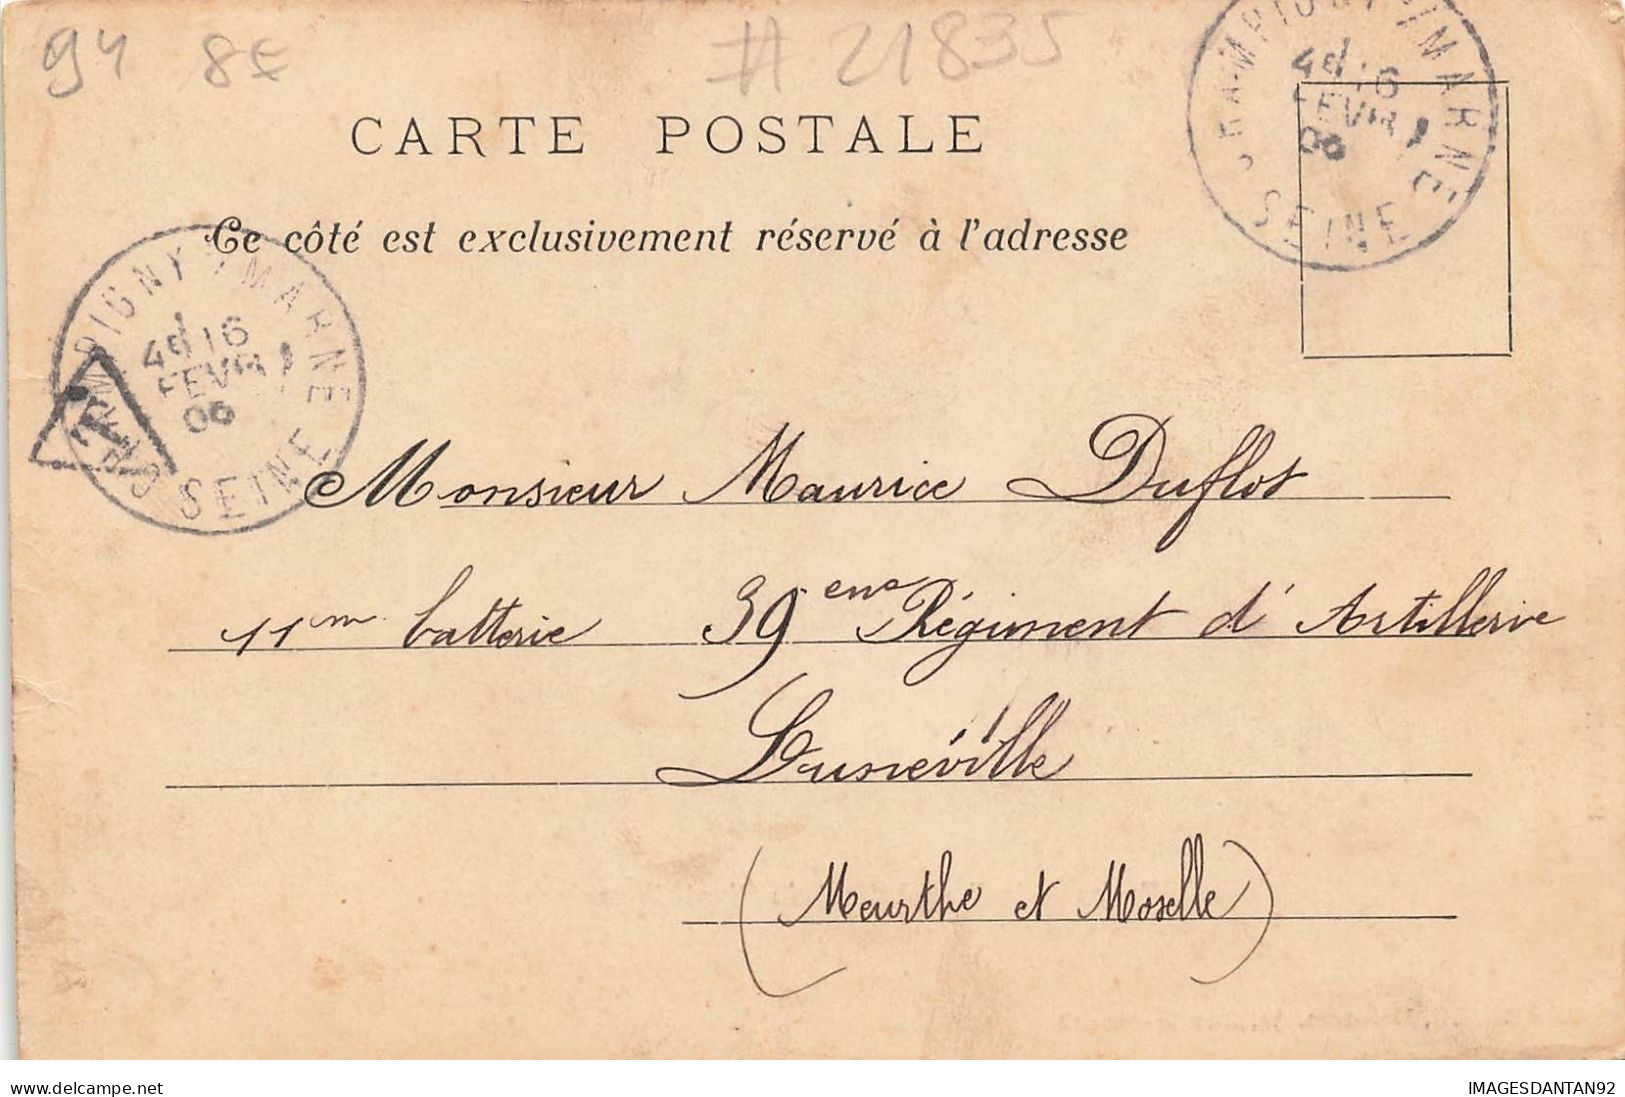 94 8€ # 21835
CARTE POSTALE
Ce côté est exclusivement réservé à l'adresse
CHAMPIGNY S/MARNE
4e 16
FEVR
06
SEINE
CHAMPIGNY S/MARNE
4e 16
FEVR
06
SEINE
T
Monsieur Maurice Duflot
11me batterie 39ème Régiment d'Artillerie
Lunéville
(Meurthe et Moselle)
www.delcampe.net
IMAGESDANTAN92